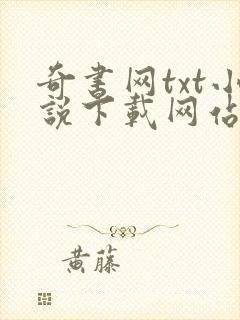 奇书网txt小
說下載网佔
黄藤